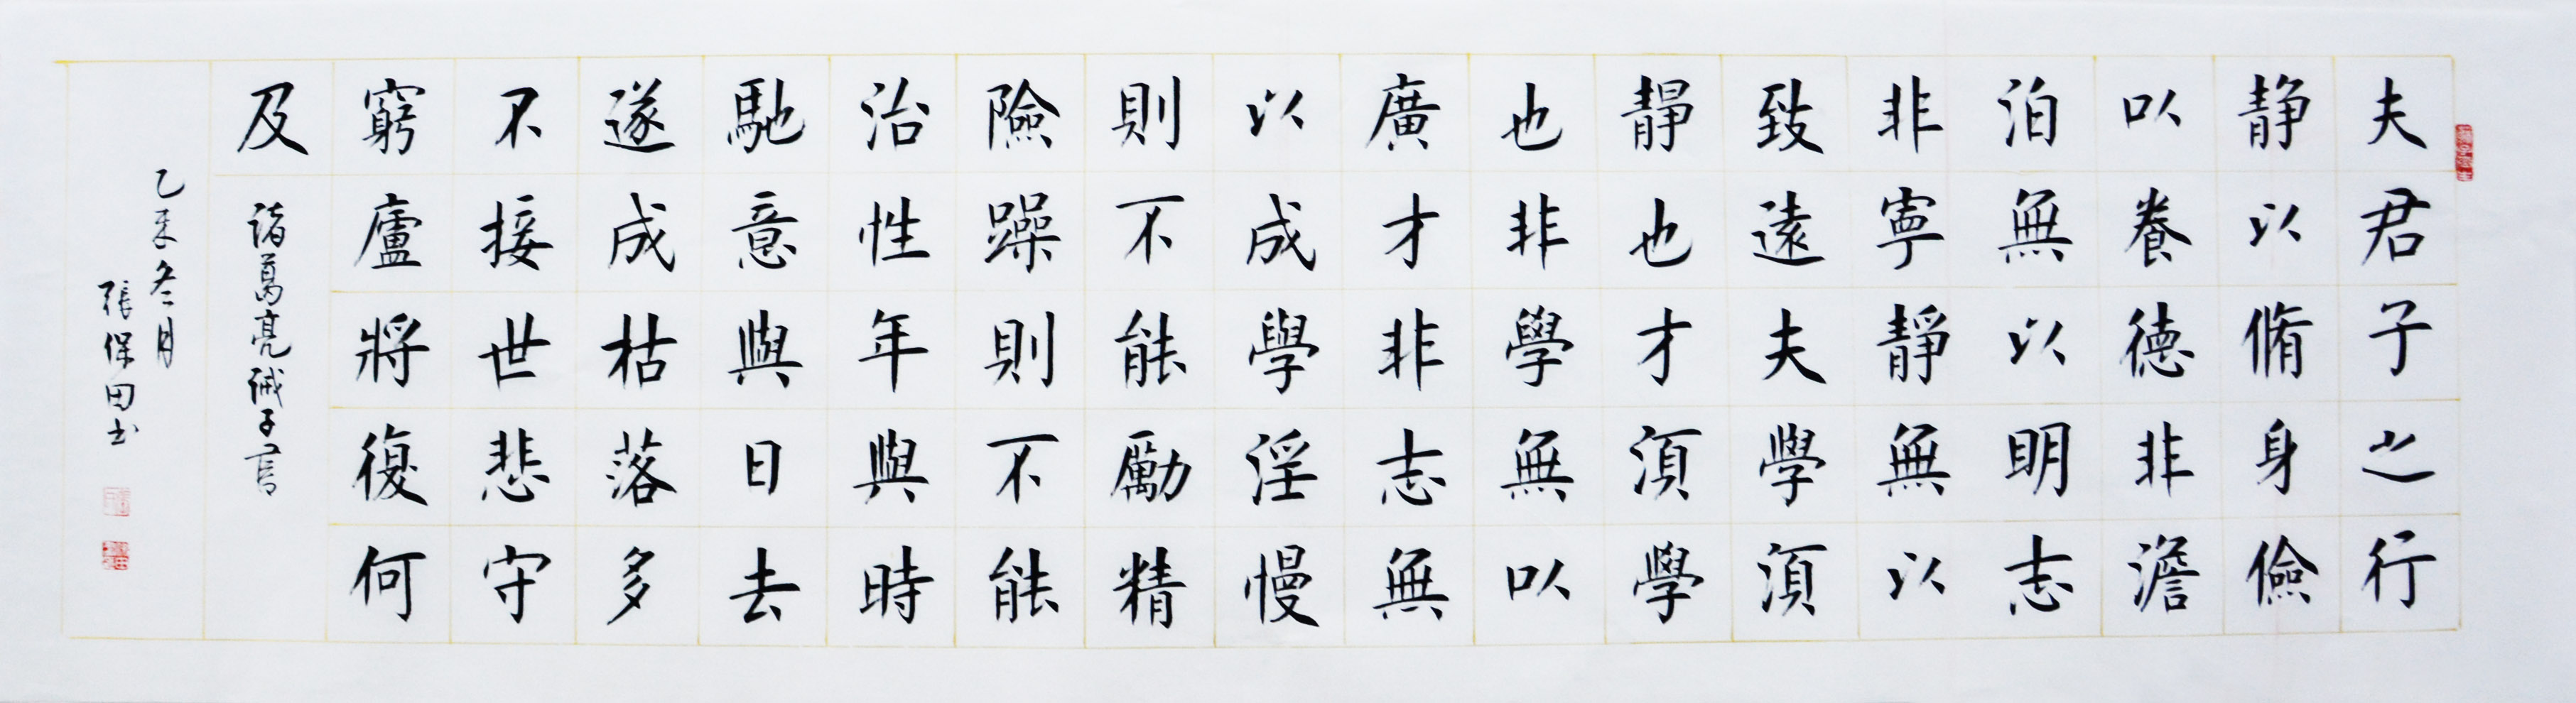 夫君子之行
静以脩身儉
以養德非澹
泊無以明志
非寧靜無以
致遠夫學須
靜也才須學
也非學無以
廣才非志無
以成學淫慢
則不能勵精
險躁則不能
治性年與時
馳意與日去
遂成枯落多
不接世悲守
窮廬將復何
及
諸葛亮誡子書
乙未冬月
張保田书